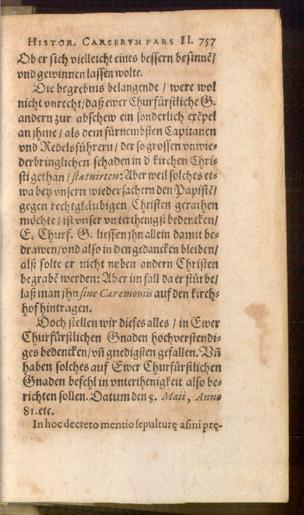 HISTOR. CARCERVM PARS II. 757
Ob er sich vielleicht eines bessern besinnẽ/
vnd gewinnen lassen wolte.
Die begrebnis belangende / were wol
nicht vnrecht/ daß ewer Churfürstliche G.
andern zur abschew ein sonderlich exẽpel
an jhme/ als dem fürnembsten Capitanen
vnd Redelsführern / der so grossen vnwie-
derbringlichen schaden in d kirchen Chris-
ti gethan / statuirten: Aber weil solches et-
wa bey vnsern wiedersachern den Papistẽ/
gegen rechtgläubigen Christen gerathen
möchte / ist vnser vnterthenigst bedencken/
E. Churf. G. liessen jhn allein damit be-
drawen/ vnd also in den gedancken bleiben/
alß solte er nicht neben andern Christen
begrabẽ werden: Aber im fall da er stürbe/
laß man jhn sine Cæremoniis auf den kirch-
hof hintragen.
Doch stellen wir dieses alles / in Ewer
Churfürstlichen Gnaden hochverstendi-
ges bedencken/ vñ gnedigsten gefallen. Vñ
haben solches auf Ewer Churfürstlichen
Gnaden befehl in vnterthenigkeit also be-
richten sollen. Datum den 5. Maii, Anno
81. etc.
In hoc decreto mentio sepulturę asini prę-